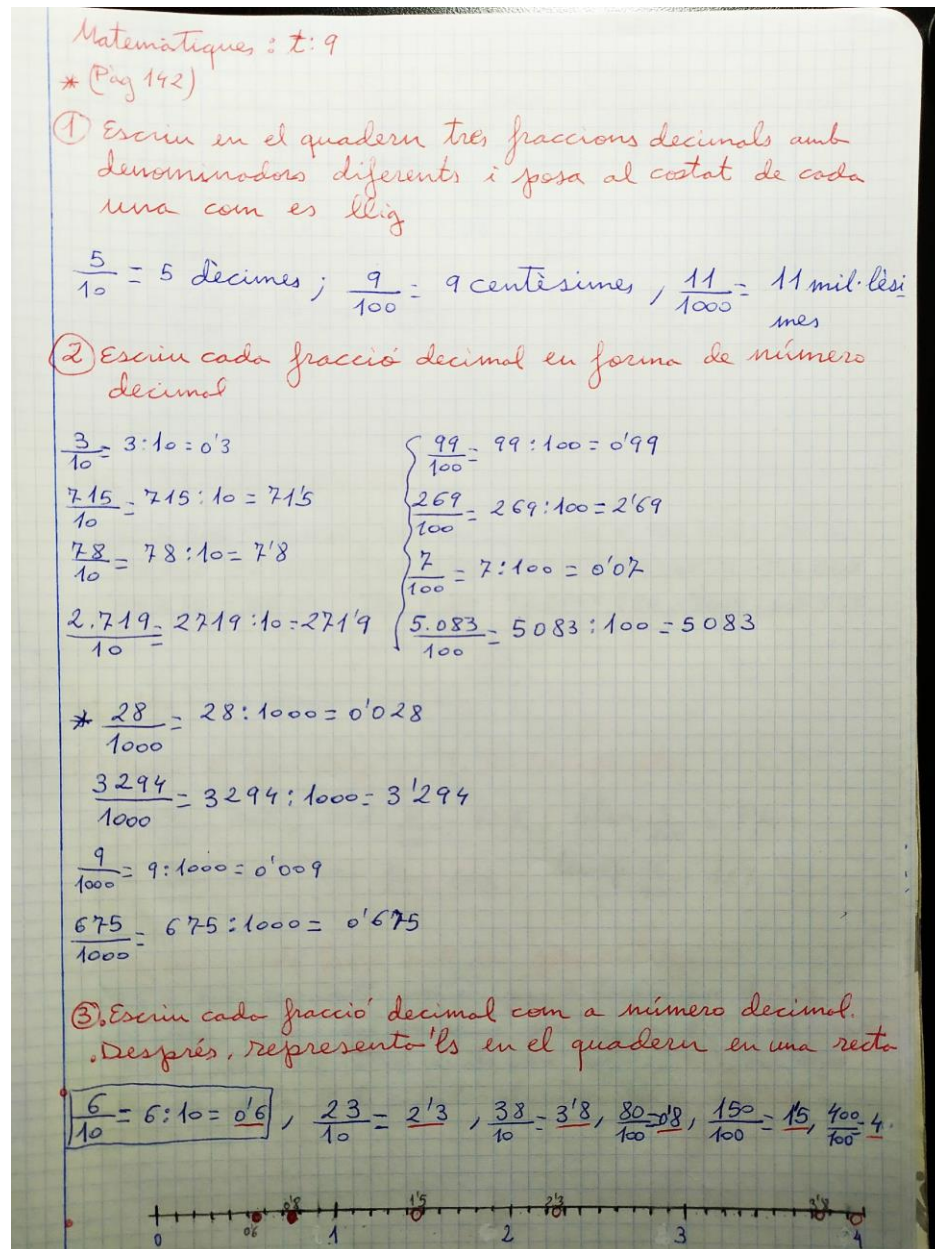 Matemàtiques : t: 9
* (Pàg 142)
① Escriu en el quadern tres fraccions decimals amb
denominadors diferents i posa al costat de cada
una com es llig
5/10 = 5 dècimes ; 9/100 = 9 centèsimes , 11/1000 = 11 mil·lèsi
mes
② Escriu cada fracció decimal en forma de número
decimal
3/10 = 3:10 = 0'3
715/10 = 715:10 = 71'5
78/10 = 78:10 = 7'8
2.719/10 = 2719:10 = 271'9
99/100 = 99:100 = 0'99
269/100 = 269:100 = 2'69
7/100 = 7:100 = 0'07
5.083/100 = 5083:100 = 5083
* 28/1000 = 28:1000 = 0'028
3294/1000 = 3294:1000 = 3'294
9/1000 = 9:1000 = 0'009
675/1000 = 675:1000 = 0'675
③. Escriu cada fracció decimal com a número decimal.
. Després, representa'ls en el quadern en una recta
6/10 = 6:10 = 0'6 , 23/10 = 2'3 , 38/10 = 3'8 , 80/100 = 0'8 , 150/100 = 1'5 , 400/100 = 4.
0'8 1'5 2'3 3'8
0 0'6 1 2 3 4